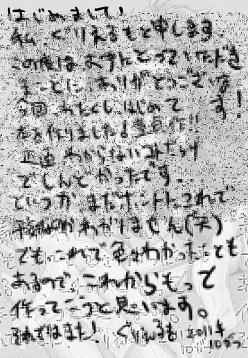 はじめまして
私、ぐりえるもと申します。
この度はお手にとっていただき
まことに、ありがとうございま
す!
今回、わたくし、はじめて
本を作りました!
正直わからないコトだらけ
でしんどかったです。
というか まだホントにこれで
わかりません(笑)
でも、これで色々わかったことも
あるので、これからもって
作ってこうと思います。
それではまた! ぐりえるも